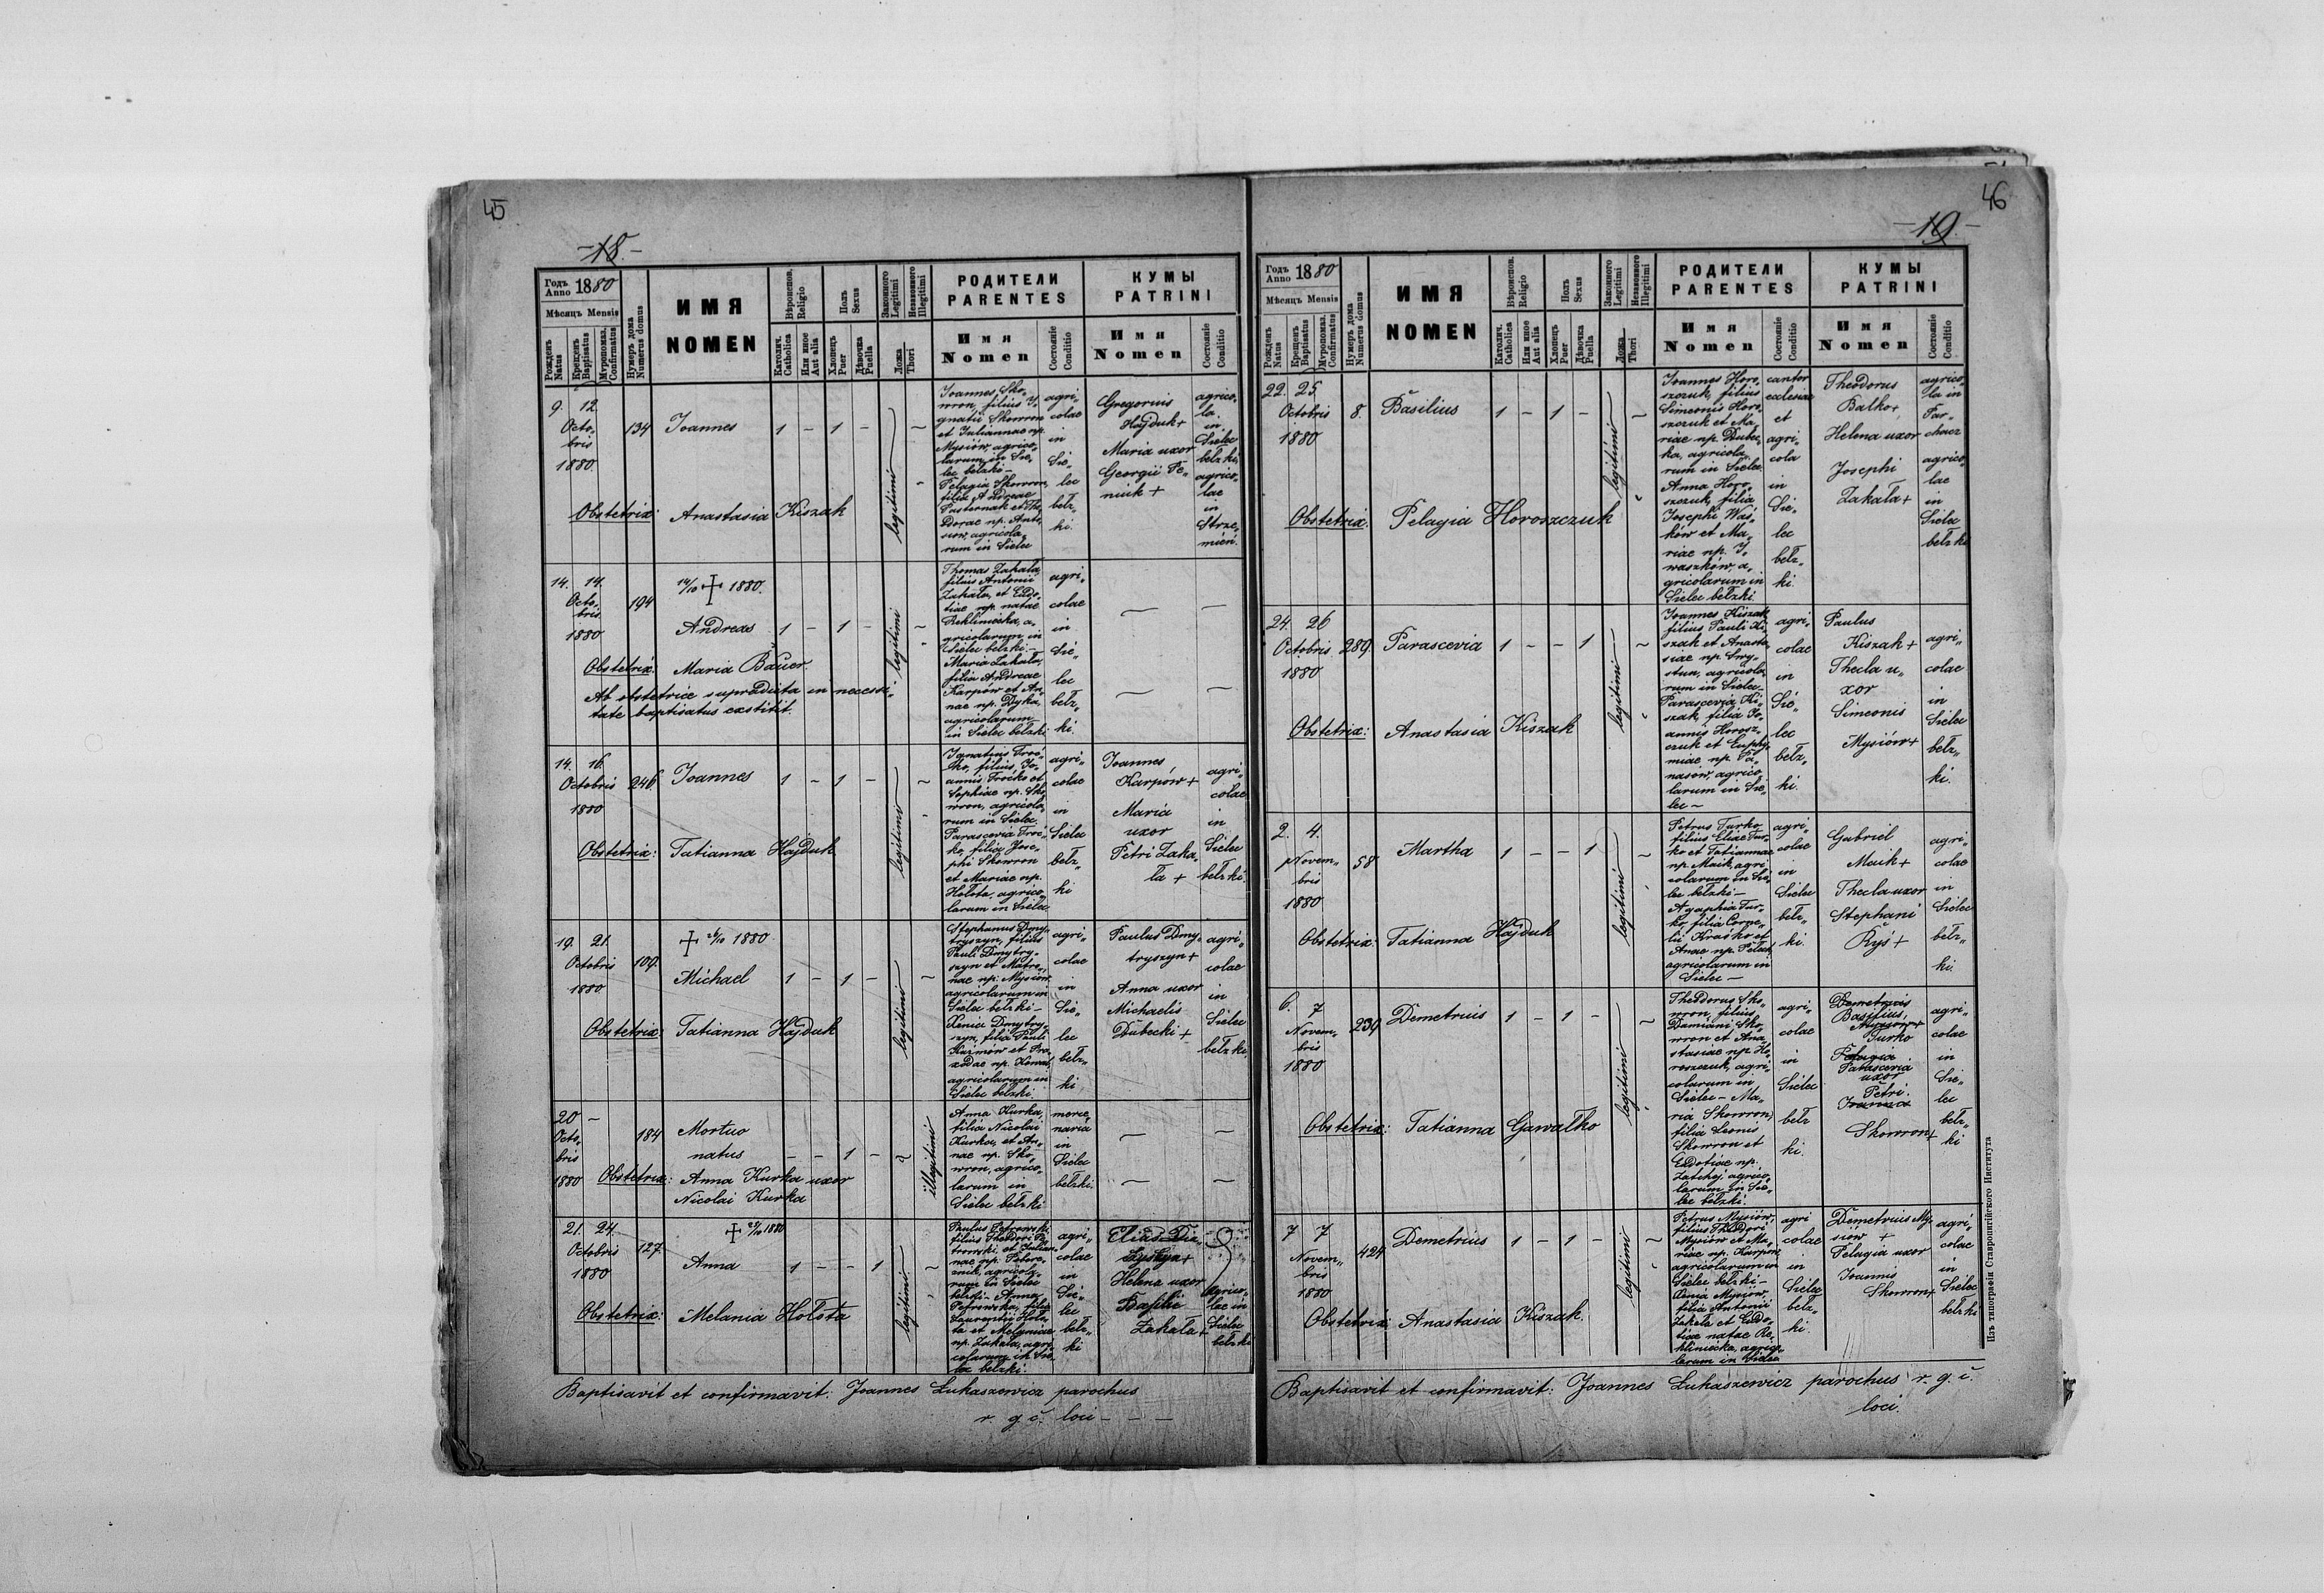 45
-18.-
Годъ Anno 1880
Мѣсяцъ Mensis
Рожденъ Natus
Крещенъ Baptisatus
Мѵропомаз. Confirmatus
Нумеръ дома Numerus domus
ИМЯ
NOMEN
Вѣроисповѣд. Religio
Католич. Catholica
Или иное Aut alia
Полъ Sexus
Хлопець Puer
Дѣвочка Puella
Законного Legitimi
Незаконного Illegitimi
Ложа Thori
РОДИТЕЛИ
PARENTES
Имя
Nomen
Состояніе Conditio
КУМЫ
PATRINI
Имя
Nomen
Состояніе Conditio
9. 12.
Octo„
bris
1880.
134
Joannes
1 - 1 -
legitimi
Joannes Sko„
wron, filius J„
gnatii Skowron
et Juliannae np.
Mysiów, agrico„
larum in Sie„
lec belzki –
Pelagia Skowron,
filia Andreae
Pasternak et The„
dorae np.
agricola„
rum in Sielec
agri„
colae
in
Sie„
lec
bełz„
ki.
Gregorius
Hajduk +
Maria uxor
Georgii Pe„
niuk +
agrico„
la.
in.
Sielec
belzki,
agrico„
lae
in
Strze„
mień.
Obstetrix: Anastasia Kiszak
14. 14.
Octo„
bris
1880
194
14/10 + 1880.
Andreas
1 - 1 -
legitimi
Thomas Zakała,
filius Antonii
Zakała, et Eudo„
tiae np. natae
Rekliniecka, a„
gricolarum in
Sielec belzki. –
Maria Zakała,
filia Andreae
Karpów et An„
nae np. Dyka,
agricolarum
in Sielec belzki.
agri„
colae
in
Sie„
lec
bełz„
ki.
Obstetrix: Maria Bauer.
Ab obstetrice supradicta in necessi„
tate baptisatus exstitit.
14. 16.
Octobris
1880
246.
Joannes
1 - 1 -
legitimi
Ignatius Troć„
ko, filius Jo„
annis Troćko et
Sophiae np. Sko„
wron, agricola„
rum in Sielec.
Parascevia Troć„
ko, filia Jose„
phi Skowron
et Mariae np.
Hołota, agrico„
larum in Sielec.
agri„
colae
in
Sielec
bełz„
ki
Joannes
Karpów +
Maria
uxor
Petri Zaka„
ła +
agri„
colae
in
Sielec
bełzki.
Obstetrix: Tatianna Hajduk
19. 21.
Octobris
1880.
109.
+ 26/10 1880
Michael
1 - 1 -
legitimi
Stephanus Dmy„
tryszyn, filius
Pauli Dmytry„
szyn et Matro„
nae np. Mysiów
agricolarum in
Sielec bełzki –
Xenia Dmytry„
szyn, filia Pauli
Kuźmów et Pra„
xedae np.
agricolarum in
Sielec belzki.
agri„
colae
in
Sie„
lec
bełz„
ki
Paulus Dmy„
tryszyn +
Anna uxor
Michaelis
Dubecki +
agri„
colae
in
Sielec
bełzki
Obstetrix: Tatianna Hajduk
20 –
Octo„
bris
1880
184
Mortuo
natus
- - 1 -
illegitimi
Anna Kurka,
filia Nicolai
Kurka, et An„
nae np. Sko„
wron, agrico„
larum in
Sielec bełzki
merce„
naria
in
Sielec
bełzki.
Obstetrix: Anna Kurka uxor
Nicolai Kurka
21. 24.
Octobris
1880
127.
+ 1880
Anna
1 - - 1
legitimi
Paulus Petrowski
filius Theodori Pe„
trowski, et Julian„
nae np.
agricola„
rum in Sielec
belzki – Anna
Petrowska, filia
Laurentii Hoło„
ta et Melaniae
np. Zakała, agri„
colarum in Sie„
lec belzki.
agri„
colae
in
Sie„
lec
bełz„
ki
Elias
Helena uxor
Basilii
Zakała +
agrico„
lae in
Sielec
bełzki
Obstetrix: Melania Hołota
Baptisavit et confirmavit: Joannes Łukaszewicz parochus
r. g. c. loci – – –
46
-19.-
Годъ Anno 1880
Мѣсяцъ Mensis
Рожденъ Natus
Крещенъ Baptisatus
Мѵропомаз. Confirmatus
Нумеръ дома Numerus domus
ИМЯ
NOMEN
Вѣроисповѣд. Religio
Католич. Catholica
Или иное Aut alia
Полъ Sexus
Хлопець Puer
Дѣвочка Puella
Законного Legitimi
Незаконного Illegitimi
Ложа Thori
РОДИТЕЛИ
PARENTES
Имя
Nomen
Состояніе Conditio
КУМЫ
PATRINI
Имя
Nomen
Состояніе Conditio
22. 25.
Octobris
1880
8.
Basilius
1 - 1 -
legitimi
Joannes Horo„
szczuk, filius
Simeonis Horo„
szczuk et Ma„
riae np. Dubec„
ka, agricola„
rum in Sielec.
Anna Horo„
szczuk, filia
Josephi Waś„
ków et Ma„
riae np. J„
waszków, a„
gricolarum in
Sielec belzki.
cantor
ecclesiae
et
agri„
cola
in
Sie„
lec
bełz„
ki.
Theodorus
Balko +
Helena uxor
Josephi
Zakała +
agrico„
la in
Par„
chacz
agrico„
lae
in
Sielec
bełzki
Obstetrix: Pelagia Horoszczuk
24. 26
Octobris
1880
289.
Parascevia
1 - - 1
legitimi
Joannes Kiszak
filius Pauli Ki„
szak et Anasta„
siae np. Smy„
stun, agricola„
rum in Sielec –
Parascevia Ki„
szak, filia Jo„
annis Horosz„
czuk et Euphy„
miae np. Pa„
nasów, agrico„
larum in Sie„
lec –
agri„
colae
in
Sie„
lec
bełz„
ki.
Paulus
Kiszak +
Thecla u„
xor
Simeonis
Mysiów +
agri„
colae
in
Sielec
bełz„
ki.
Obstetrix: Anastasia Kiszak
2. 4.
Novem„
bris
1880
58
Martha
1 - - 1
legitimi
Petrus Turko
filius Eliae Tur„
ko et Tatiannae
np. Maik, agri„
colarum in Sie„
lec bełzki –
Agaphia Tur„
ko, filia Corne„
lii Kraśko et
Annae np.
agricolarum in
Sielec –
agri„
colae
in
Sielec
bełz„
ki.
Gabriel
Maik +
Thecla uxor
Stephani
Ryś +
agri„
colae
in
Sielec
bełz„
ki.
Obstetrix: Tatianna Hajduk
6. 7
Novem„
bris
1880
239
Demetrius
1 - 1 -
legitimi
Theodorus Sko„
wron, filius
Damiani Sko„
wron et Ana„
stasiae np. Ho„
roszczuk, agri„
colarum in
Sielec – Ma„
ria Skowron,
filia Leonis
Skowron et
Eudotiae np.
agrico„
larum in Sie„
lec belzki.
agri„
colae
in
Sielec
bełz
ki.
Demetrius
Basilius,
Turko
Pelagia
Parascevia
uxor
Petri
Skowron +
agri„
colae
in
Sie„
lec
bełz„
ki
Obstetrix: Tatianna Gawałko
7 7
Novem„
bris
1880
424
Demetrius
1 - 1 -
legitimi
Petrus Mysiów,
filius Theodori
Mysiów et Ma„
riae np. Karpów,
agricolarum in
Sielec belzki –
Xenia Mysiów
filia Antonii
Zakała et Eudo„
tiae natae Re„
kliniecka, agrico„
larum in Sielec
agri
colae
in
Sielec
bełz„
ki.
Demetrius My„
siów +
Pelagia uxor
Joannis
Skowron +
agri„
colae
in
Sielec
bełzki
Obstetrix: Anastasia Kiszak.
Baptisavit et confirmavit: Joannes Łukaszewicz parochus r. g. c.
loci.
Изъ типографіи Ставропигійского Института